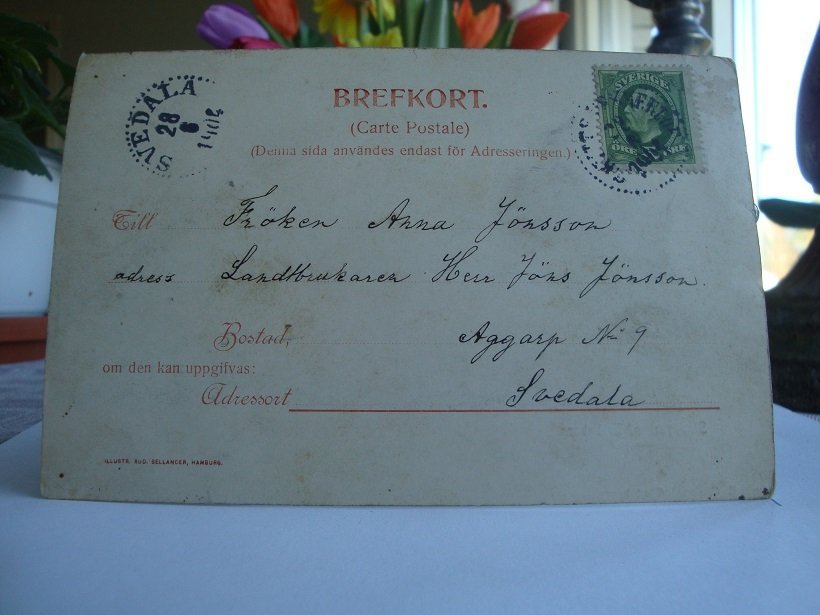 SVEDALA
28
8
1902
BREFKORT.
(Carte Postale)
(Denna sida användes endast för Adresseringen.)
SVERIGE
ÖRE ÖRE
Till Fröken Anna Jönsson
adress Landtbrukaren Herr Jöns Jönsson.
Bostad, Aggarp No 9
om den kan uppgifvas:
Adressort Svedala
ILLUSTR. RUD. BELLANDER, HAMBURG.